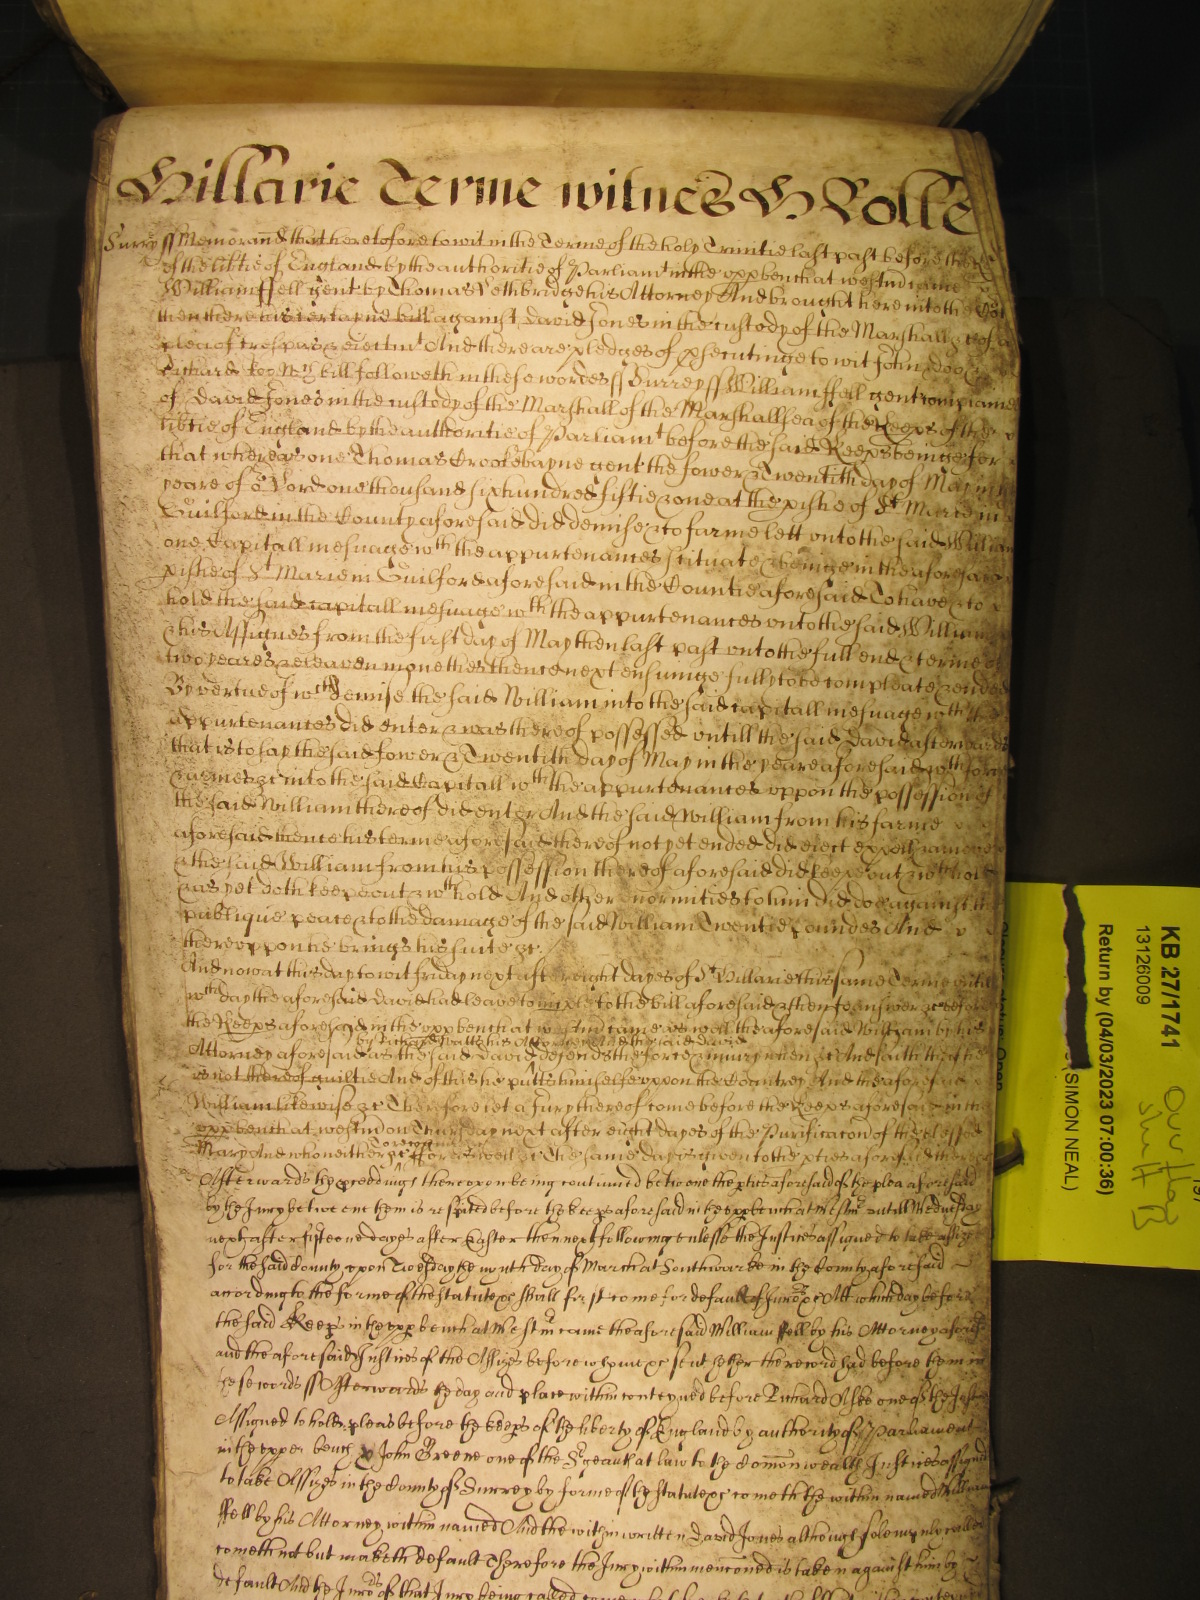 Hillarie Terme witnes H Rolle
Surrey ss Memorand that heretofore to wit in the Terme of the holy Trinitie last past before the
of the libtie of England by the authoritie of Parliamt in the upp bench at westm came
William ffell gent by Thomas Lethbridge his Attorney And brought here into the
then there his certayne bill against David Jones in the custody of the Marshall &c of a
plea of trespas & eiectmt And there are pledges of psecutinge to wit John Doo &
Richard Roo wch bill followeth in these wordes ss Surrey ss William ffell gent complaines
of David Jones in the custody of the Marshall of the Marshallsea of the Keeps of the
libtie of England by the authoritie of Parliamt before the said Keeps beinge for
that whereas one Thomas Crookebayne gent the fower & Twentith day of May in the
yeare of or Lord one thousand six hundred fiftie & one at the pishe of St Marie in
Guilford in the County aforesaid did demise & to farme lett unto the said William
one Capitall mesuage wth the appurtenances scituate & beinge in the aforesaid
pishe of St Marie in Guilford aforesaid in the Countie aforesaid To have & to
hold the said capitall mesuage wth the appurtenances unto the said William
& his Assignes from the first day of May then last past unto the full end & terme of
two yeares & eleaven monethes thence next ensuinge fully to be compleate & ended
By vertue of wch demise the said William into the said capitall mesuage wth the
appurtenances did enter & was thereof possessed untill the said David afterwards
that is to say the said fower & Twentith day of May in the yeare aforesaid wth force
& armes &c into the said Capitall wth the appurtenances uppon the possession of
the said William thereof did enter And the said William from his farme
aforesaid thence his terme aforesaid thereof not yet ended did eiect expell & amove
& the said William from his possession thereof aforesaid did keepe out & wthhold
& as yet doth keepe out & wthhold And other enormities to him did doe against the
publique peace & to the damage of the said William Twentie poundes And
thereuppon he brings his suite &c
And now at this day to wit friday next after eight dayes of St Hillarie this same Terme untill
wch day the aforesaid David had leave to imparle to the bill aforesaid & then to answer &c before
the Keeps aforesaid in the upp bench at westm came as well the aforesaid William by his
by Richard Watts his Attorney And the said David
Attorney aforesaid as the said David defends the force & iniury when &c And saith that he
is not thereof guiltie And of this he putts himselfe uppon the Countrey And the aforesaid
William likewise &c Therefore let a Jury thereof come before the Keeps aforesaid in the
upp bench at westm on Thursday next after eight dayes of the Purificacon of the blessed
Mary And who neither &c To recognize &c for aswell &c The same day is given to the pties aforesaid there &c
Afterwards the pceedings thereupon being continued betweene the pties aforesaid of the plea aforesaid
by the Jury betweene them is respited before the keeps aforesaid in the upp bench at Westmr untill Wednesday
next after fifteene dayes after Easter then next following unlesse the Justices assigned to take Assizes
for the said County upon Tuesday the nynth day of March at Southwarke in the County aforesaid
according to the forme of the Statute &c shall first come for default of Jurors &c Att which day before
the said Keeps in the upp bench at Westmr came the aforesaid William ffell by his Attorney aforesd
and the aforesaid Justices of the Assizes before whome &c sent hether the record had before them in
these words ss Afterwards the day and place within conteyned before Richard Aske one of the Justices
Assigned to hold pleas before the keeps of the liberty of England by authority of Parliament
in the upper bench & John Greene one of the Sergeants at law to the Comonwealth Justices assigned
to take Assizes in the County of Surrey by forme of the Statute &c cometh the within named William
ffell by his Attorney within named And the within written David Jones although solempnly called
cometh not but maketh default Therefore the Jury within menconed is taken against him by
default And the Jurors of that Jury being called
KB 27/1741
13126009
Return by (04/03/2023 07:00:36)
(SIMON NEAL)